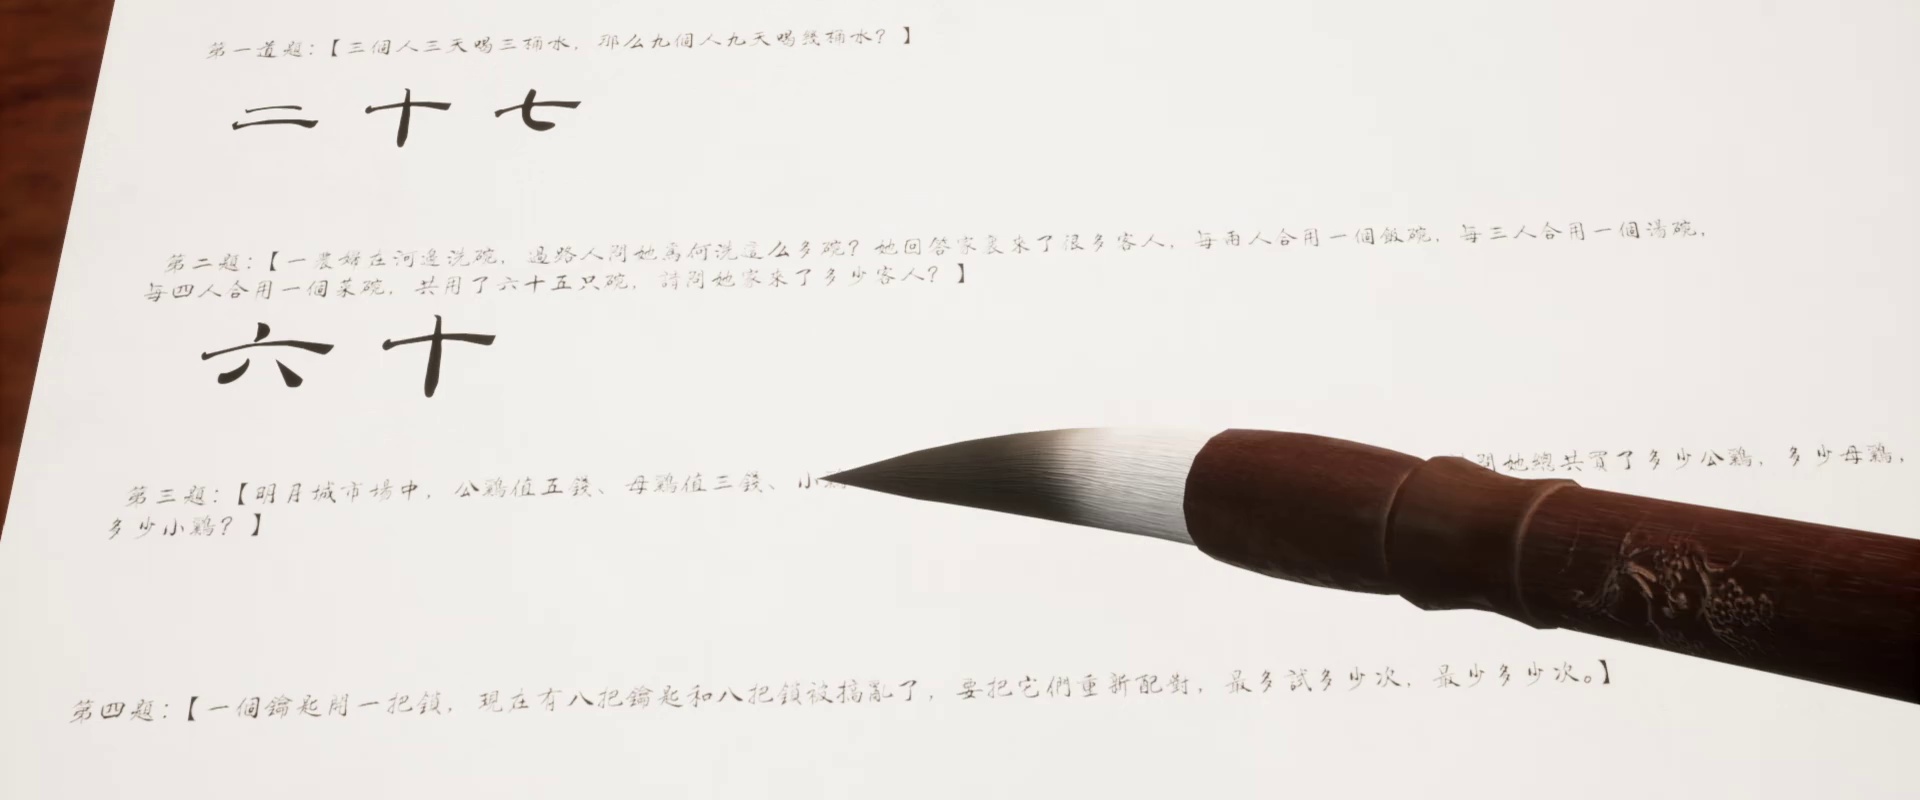 第一道題:【三個人三天喝三桶水，那么九個人九天喝幾桶水？】
二十七
第二題:【一農婦在河邊洗碗，過路人問她爲何洗這么多碗？她回答家裏來了很多客人，每兩人合用一個飯碗，每三人合用一個湯碗，
每四人合用一個菜碗，共用了六十五只碗，請問她家來了多少客人？】
六十
第三題:【明月城市場中，公鷄值五錢、母鷄值三錢、小 問她總共買了多少公鷄，多少母鷄，
多少小鷄？】
第四題:【一個鑰匙開一把鎖，現在有八把鑰匙和八把鎖被搞亂了，要把它們重新配對，最多試多少次，最少多少次。】